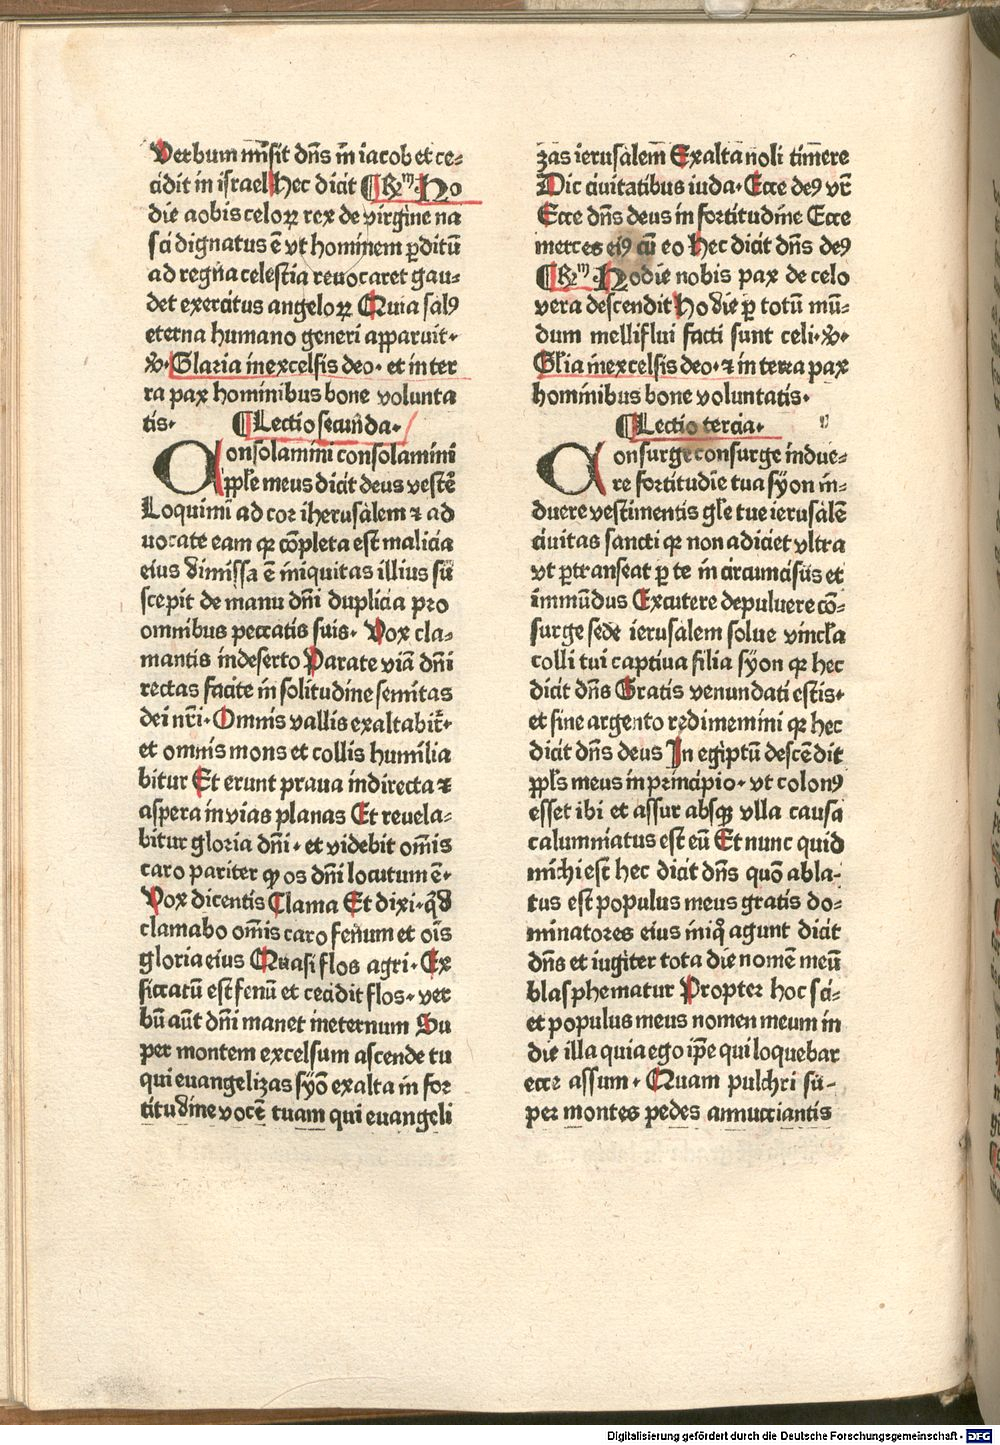 Verbum mīsit dn̄s in̄ iacob et ce⸗
cidit in israel Hec dicit ¶ Rm̄. Ho
die nobis celoꝝ rex de virgine na
sci dignatus ē vt hominem ꝑditū
ad regna celestia reuocaret gau⸗
det exercitus angeloꝝ Quia salꝰ
eterna humano generi apparuit.
℣. Glaria in excelsis deo. et in ter
ra pax hominibus bone volunta
tis. ¶ Lectio secunda.
Consolamini consolamini
pp̄le meus dicit deus vester̄
Loquimī ad cor iherusalem ⁊ ad
uocate eam qꝛ cōpleta est malicia
eius dimissa ē iniquitas illius sū
scepit de manu dn̄i duplicia pro
omnibus peccatis suis. Vox cla⸗
mantis in deserto Parate viā dn̄i
rectas facite in solitudine semitas
dei nr̄i. Omnis vallis exaltabit̄.
et omnis mons et collis humilia
bitur Et erunt praua in directa ⁊
aspera in vias planas Et reuela⸗
bitur gloria dn̄i. et videbit om̄is
caro pariter ꝙ os dn̄i locutum ē.
Vox dicentis Clama Et dixi. qͥd
clamabo om̄is caro fenum et ois̄
gloria eius Quasi flos agri. Ex
siccatū est fenū et cecidit flos. ver
bū aūt dn̄i manet in eternum Su
per montem excelsum ascende tu
qui euangelizas syō exalta in for
titudine vocē tuam qui euangeli
zas ierusalem Exalta noli timere
Dic ciuitatibus iuda. Ecce deꝰ vr̄
Ecce dn̄s deus in fortitudine Ecce
merces eiꝰ cū eo Hec dicit dn̄s deꝰ
¶ Rm̄. Hodie nobis pax de celo
vera descendit Hodie ꝑ totū mū⸗
dum melliflui facti sunt celi. ℣.
Gl̄ia in excelsis deo. ⁊ in terra pax
hominibus bone voluntatis.
¶ Lectio tercia.
Consurge consurge indue⸗
re fortitudīe tua syon in⸗
duere vestimentis gl̄e tue ierusalē
ciuitas sancti qꝛ non adiciet vltra
vt ꝑtranseat ꝑ te in circumcisus et
immūdus Excutere de puluere cō⸗
surge sede ierusalem solue vincla
colli tui captiua filia syon qꝛ hec
dicit dn̄s Gratis venundati estis.
et sine argento redimemini qꝛ hec
dicit dn̄s deus In egiptū descēdit
pp̄ls meus in principio. vt colonꝰ
esset ibi et assur absqꝫ vlla causa
calumniatus est eū Et nunc quid
michi est hec dicit dn̄s quō abla⸗
tus est populus meus gratis do⸗
minatores eius iniq̄ agunt dicit
dn̄s et iugiter tota die nomē meū
blasphematur Propter hoc sci⸗
et populus meus nomen meum in
die illa quia ego ip̄e qui loquebar
ecce assum. Quam pulchri sū⸗
per montes pedes annuncciantis
Digitalisierung gefördert durch die Deutsche Forschungsgemeinschaft - DFG